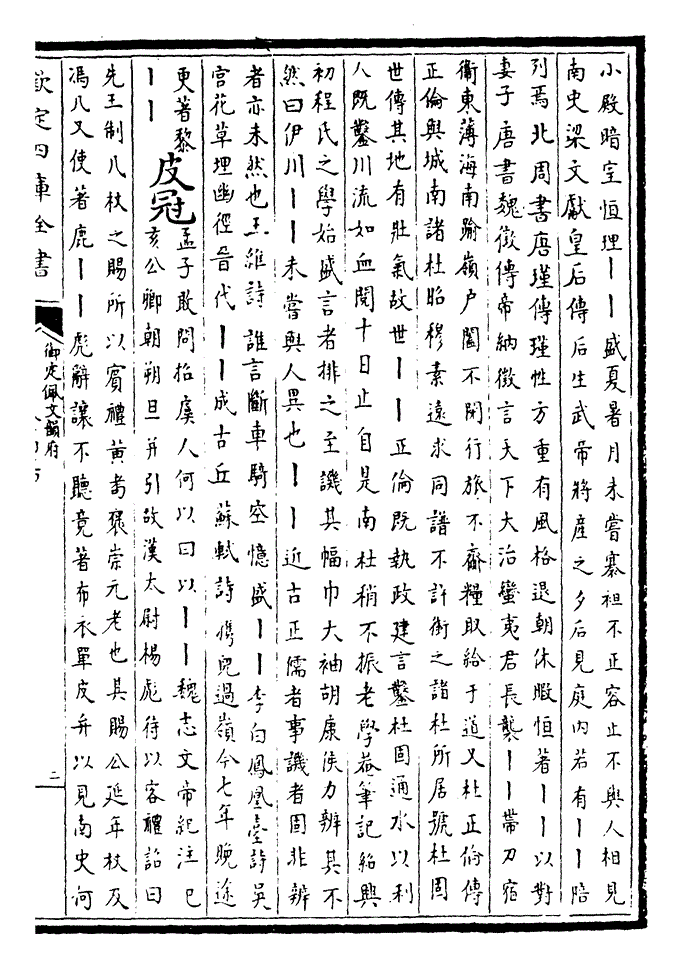 小殿暗室恒理丨丨盛夏暑月未嘗褰袒不正容止不與人相見
南史梁文獻皇后傳后生武帝將產之夕后見庭内若有丨丨陪
列焉北周書唐瑾傳瑾性方重有風格退朝休暇恒著丨丨以對
妻子唐書魏徵傳帝納徵言天下大治蠻夷君長襲丨丨帶刀宿
衛東薄海南踰嶺户闔不閉行旅不齎糧取給于道又杜正倫傳
正倫與城南諸杜昭穆素遠求同譜不許銜之諸杜所居號杜固
世傳其地有壯氣故世丨丨正倫既執政建言鑿杜固通水以利
人既鑿川流如血閱十日止自是南杜稍不振老學菴筆記紹興
初程氏之學始盛言者排之至譏其幅巾大袖胡康侯力辨其不
然曰伊川丨丨未嘗與人異也丨丨近古正儒者事譏者固非辨
者亦未然也王維詩誰言斷車騎空憶盛丨丨李白鳳凰臺詩吳
宫花草埋幽徑晉代丨丨成古丘蘇軾詩攜兒過嶺今七年晚途
更著黎丨丨皮冠孟子敢問招虞人何以曰以丨丨魏志文帝紀注已
亥公卿朝朔旦并引故漢太尉楊彪待以客禮詔曰
先王制几杖之賜所以賓禮黄耇褒崇元老也其賜公延年杖及
馮几又使著鹿丨丨彪辭讓不聽竟著布衣單皮弁以見南史何
欽定四庫全書
御定佩文韻府
二